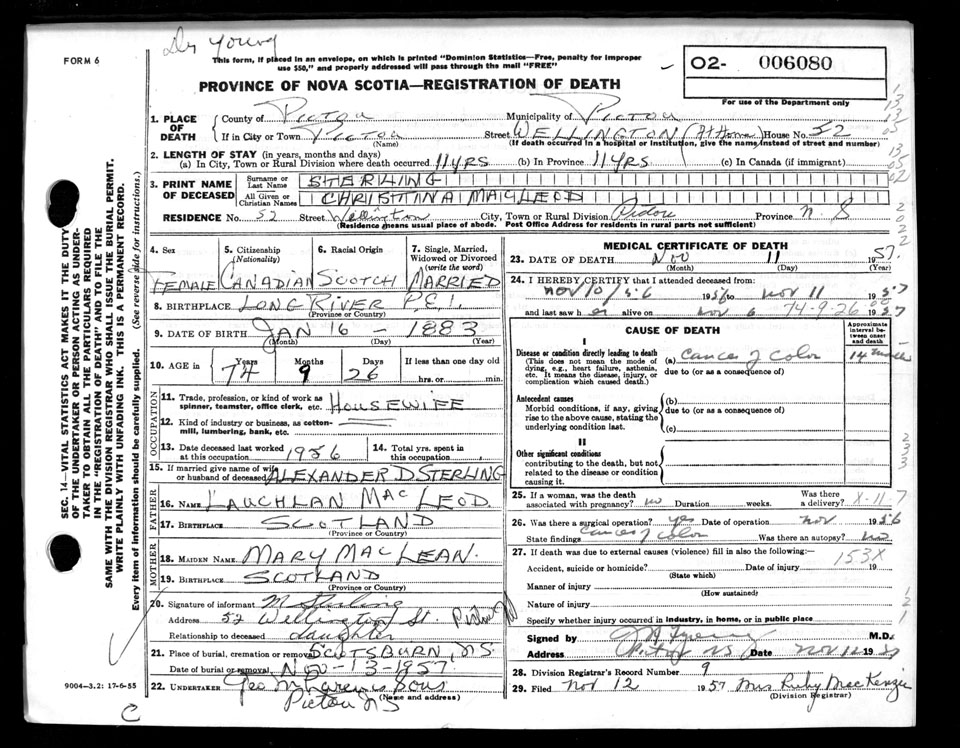 Dr Young
FORM 6
This form, if placed in an envelope, on which is printed "Dominion Statistics—Free, penalty for improper
use $50," and properly addressed will pass through the mail "FREE"
O2- 006080
For use of the Department only
PROVINCE OF NOVA SCOTIA—REGISTRATION OF DEATH
1. PLACE OF DEATH
County of PICTOU Municipality of PICTOU
If in City or Town PICTOU Street WELLINGTON (At Home) House No. 52
(Name) (If death occurred in a hospital or institution, give the name instead of street and number)
2. LENGTH OF STAY (in years, months and days)
(a) In City, Town or Rural Division where death occurred 11 YRS (b) In Province 11 YRS (c) In Canada (if immigrant)
3. PRINT NAME OF DECEASED
Surname or Last Name STERLING
All Given or Christian Names CHRISTINA MACLEOD
RESIDENCE No. 52 Street Wellington City, Town or Rural Division Pictou Province N.S
(Residence means usual place of abode. Post Office Address for residents in rural parts not sufficient)
4. Sex 5. Citizenship (Nationality) 6. Racial Origin 7. Single, Married, Widowed or Divorced (write the word)
FEMALE CANADIAN SCOTCH MARRIED
8. BIRTHPLACE LONG RIVER P.E.I.
(Province or Country)
9. DATE OF BIRTH JAN 16 - 1883
(Month) (Day) (Year)
10. AGE in Years Months Days If less than one day old
74 9 26 hrs. or min.
OCCUPATION
11. Trade, profession, or kind of work as
spinner, teamster, office clerk, etc. HOUSEWIFE
12. Kind of industry or business, as cotton-
mill, lumbering, bank, etc.
13. Date deceased last worked at this occupation 1956 14. Total yrs. spent in this occupation
15. If married give name of wife or husband of deceased ALEXANDER D STERLING
FATHER
16. NAME LAUCHLAN MAC LEOD
17. BIRTHPLACE SCOTLAND
(Province or Country)
MOTHER
18. MAIDEN NAME MARY MACLEAN.
19. BIRTHPLACE SCOTLAND
(Province or Country)
20. Signature of informant M Sterling
Address 52 Wellington St. Pictou NS
Relationship to deceased daughter
21. Place of burial, cremation or removal SCOTSBURN, N.S.
Date of burial or removal NOV - 13 - 1957
22. UNDERTAKER Geo Sons
(Name and address)
Pictou NS
MEDICAL CERTIFICATE OF DEATH
23. DATE OF DEATH Nov 11 1957.
(Month) (Day) (Year)
24. I HEREBY CERTIFY that I attended deceased from:
Nov 10/56 1956 to Nov 11 1957
and last saw her alive on Nov 6 1957
74-9-26
CAUSE OF DEATH
Approximate interval between onset and death
I
Disease or condition directly leading to death (a) Cancer of colon 14 months
(This does not mean the mode of dying, e.g., heart failure, asthenia, etc. It means the disease, injury, or complication which caused death.)
due to (or as a consequence of)
Antecedent causes (b)
Morbid conditions, if any, giving rise to the above cause, stating the underlying condition last.
due to (or as a consequence of)
(c)
II
Other significant conditions
contributing to the death, but not related to the disease or condition causing it.
25. If a woman, was the death associated with pregnancy? no Duration weeks. Was there a delivery? X-11-7
26. Was there a surgical operation? yes Date of operation Nov 1956
State findings Cancer of colon Was there an autopsy? no
27. If death was due to external causes (violence) fill in also the following:— 153X
Accident, suicide or homicide? Date of injury 19
(State which)
Manner of injury
(How sustained)
Nature of injury
Specify whether injury occurred in industry, in home, or in public place
Signed by M.D.
Address Pictou NS Date Nov 12 19
28. Division Registrar's Record Number 9
29. Filed Nov 12 1957 Mrs Ruby MacKenzie
(Division Registrar)
SEC. 14—VITAL STATISTICS ACT MAKES IT THE DUTY
OF THE UNDERTAKER OR PERSON ACTING AS UNDER-
TAKER TO OBTAIN ALL THE PARTICULARS REQUIRED
IN THE "REGISTRATION OF DEATH" AND TO FILE THE
SAME WITH THE DIVISION REGISTRAR WHO SHALL ISSUE THE BURIAL PERMIT.
WRITE PLAINLY WITH UNFADING INK. THIS IS A PERMANENT RECORD.
Every item of information should be carefully supplied. (See reverse side for instructions.)
9004-3.2: 17-6-55
C